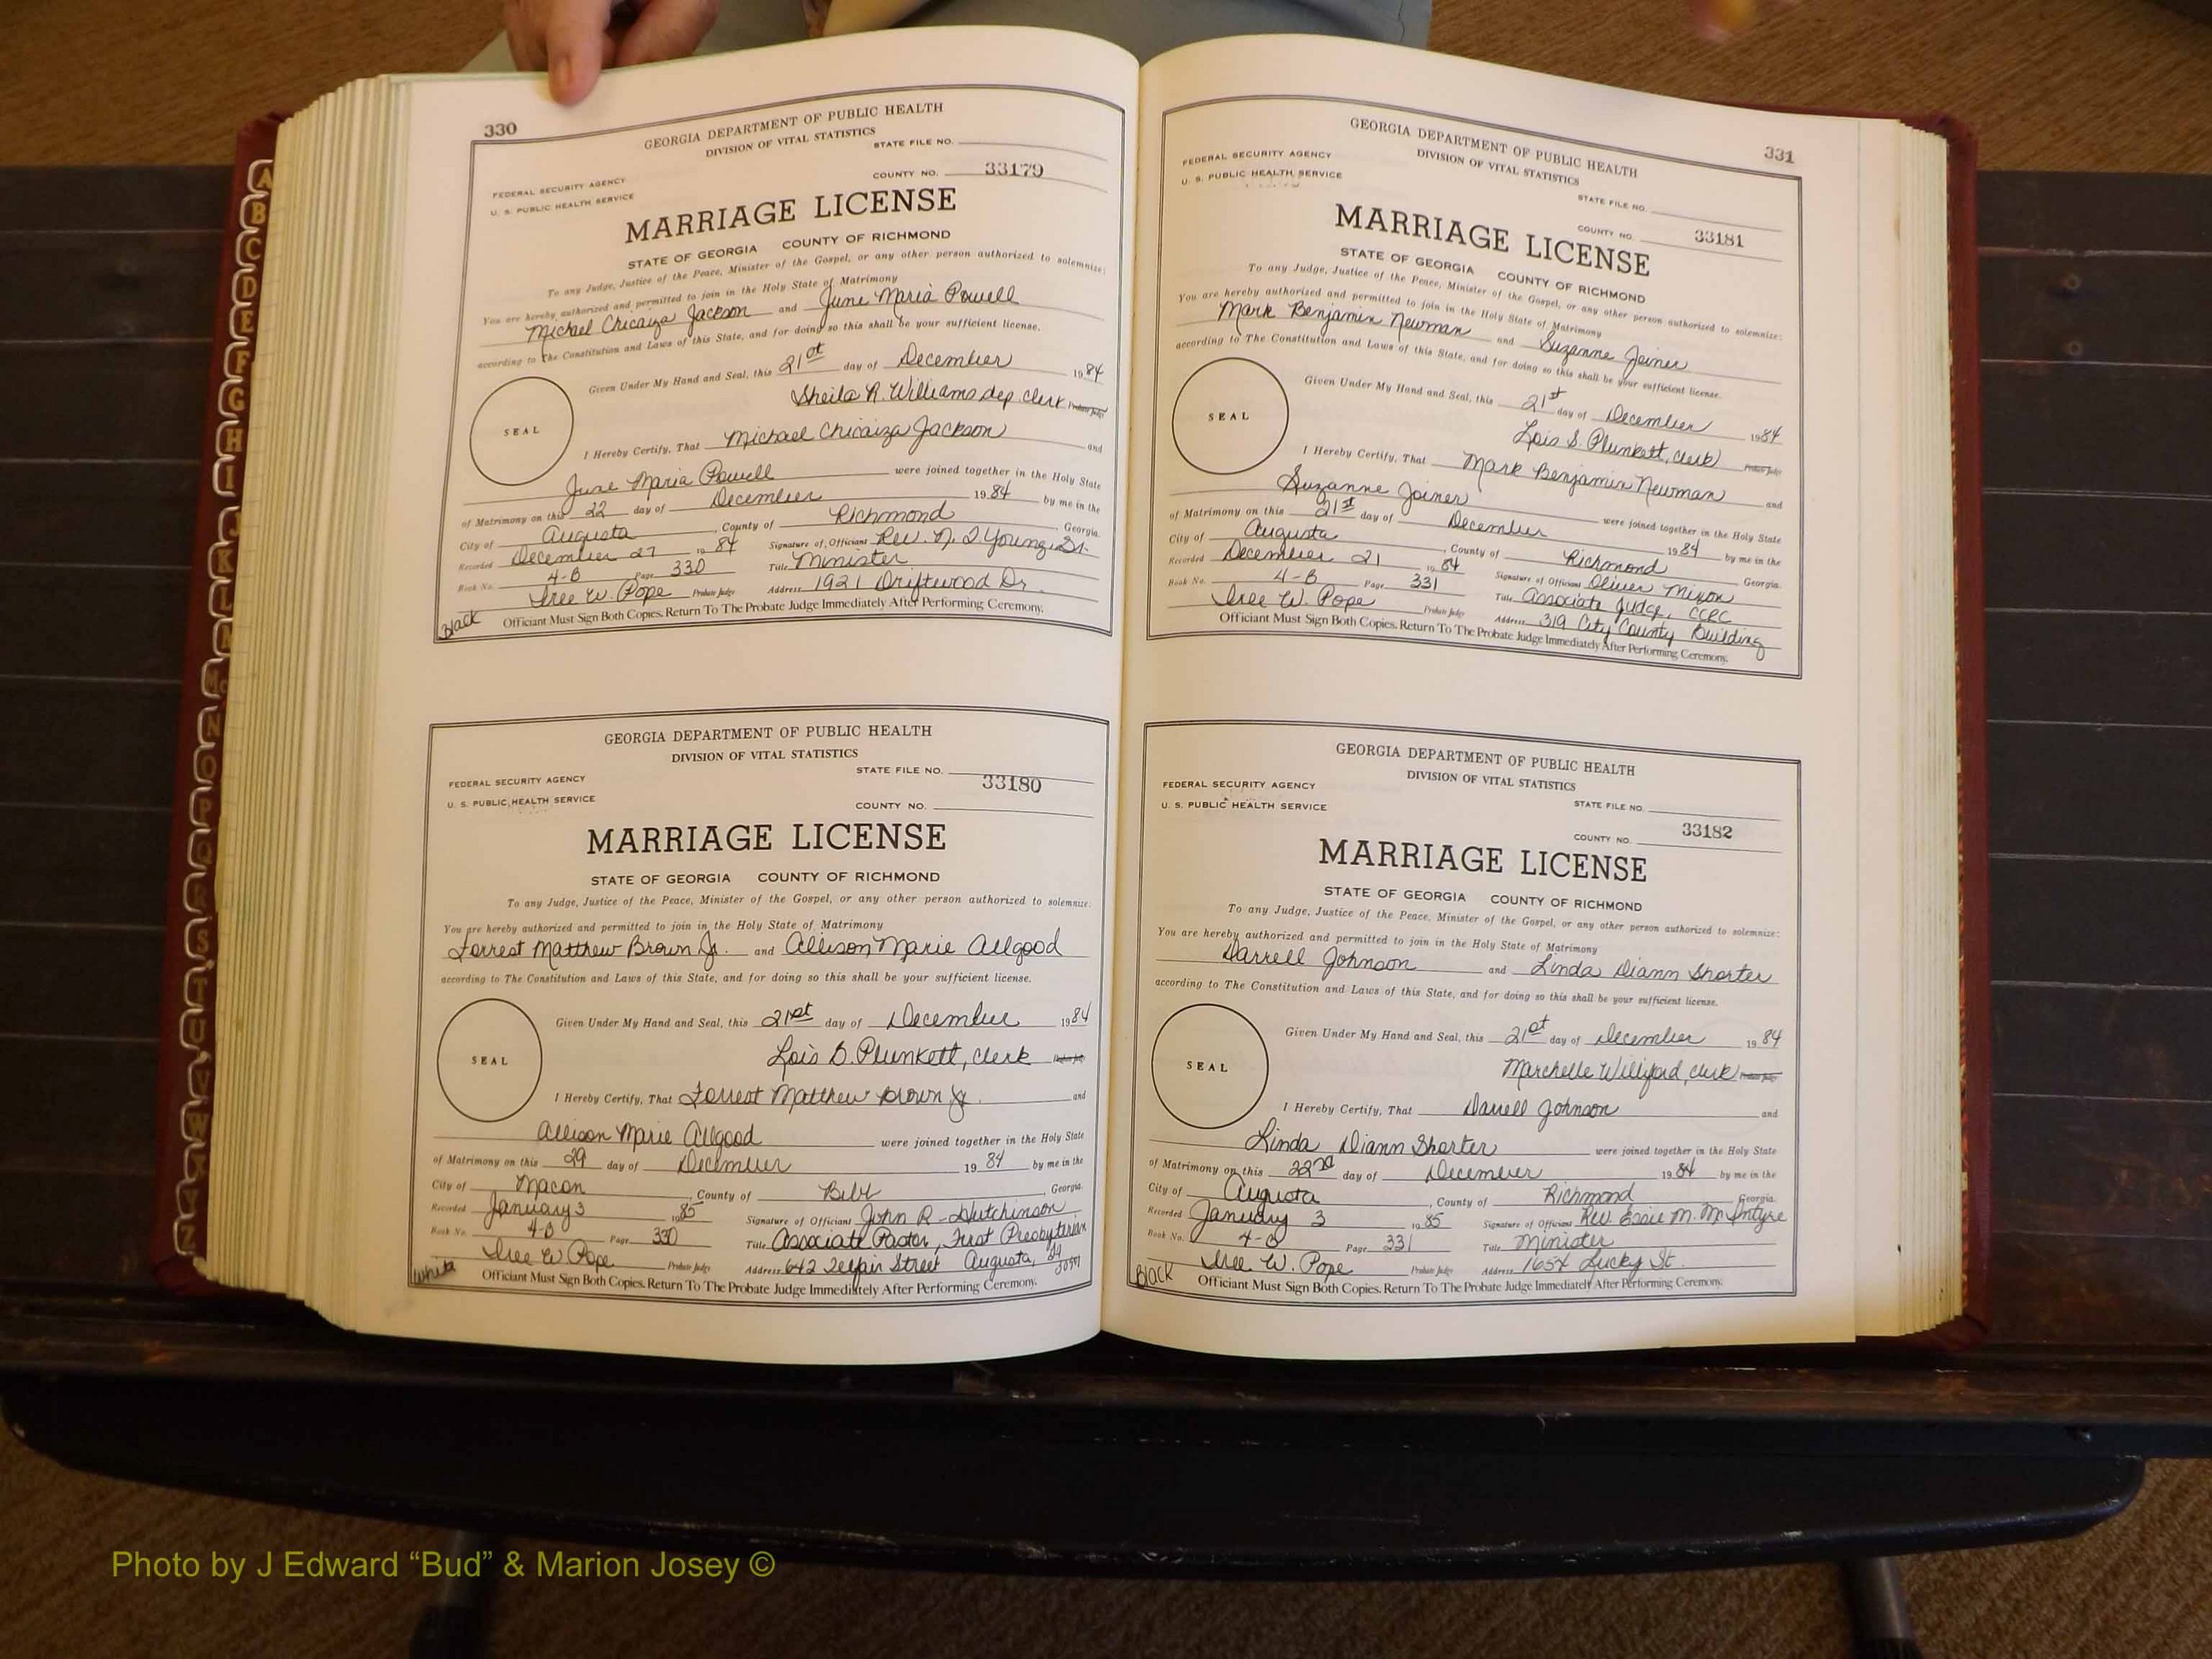 330
GEORGIA DEPARTMENT OF PUBLIC HEALTH
DIVISION OF VITAL STATISTICS
STATE FILE NO.
FEDERAL SECURITY AGENCY
U. S. PUBLIC HEALTH SERVICE
COUNTY NO. 33179
MARRIAGE LICENSE
STATE OF GEORGIA COUNTY OF RICHMOND
To any Judge, Justice of the Peace, Minister of the Gospel, or any other person authorized to solemnize:
You are hereby authorized and permitted to join in the Holy State of Matrimony
Michael Chicaiza Jackson and June Maria Powell
according to The Constitution and Laws of this State, and for doing so this shall be your sufficient license.
Given Under My Hand and Seal, this 21st day of December 1984
Sheila R. Williams dep. clerk Probate Judge
SEAL
I Hereby Certify, That Michael Chicaiza Jackson and
June Maria Powell were joined together in the Holy State
of Matrimony on this 22 day of December 1984 by me in the
City of Augusta, County of Richmond, Georgia.
Recorded December 27 1984 Signature of Officiant Rev. N. T Young, Sr.
Book No. 4-B Page 330 Title Minister
Iree W. Pope Probate Judge Address 1921 Driftwood Dr.
Black Officiant Must Sign Both Copies. Return To The Probate Judge Immediately After Performing Ceremony.
GEORGIA DEPARTMENT OF PUBLIC HEALTH
DIVISION OF VITAL STATISTICS
STATE FILE NO.
FEDERAL SECURITY AGENCY
33180
U. S. PUBLIC HEALTH SERVICE
COUNTY NO.
MARRIAGE LICENSE
STATE OF GEORGIA COUNTY OF RICHMOND
To any Judge, Justice of the Peace, Minister of the Gospel, or any other person authorized to solemnize:
You are hereby authorized and permitted to join in the Holy State of Matrimony
Forrest Matthew Brown Jr. and Allison Marie Allgood
according to The Constitution and Laws of this State, and for doing so this shall be your sufficient license.
Given Under My Hand and Seal, this 21st day of December 1984
Lois S. Plunkett, clerk Probate Judge
SEAL
I Hereby Certify, That Forrest Matthew Brown Jr. and
Allison Marie Allgood were joined together in the Holy State
of Matrimony on this 29 day of December 1984 by me in the
City of Macon, County of Bibb, Georgia.
Recorded January 3 1985 Signature of Officiant John R. Hutchinson
Book No. 4-B Page 330 Title Associate Pastor, First Presbyterian
Iree W. Pope Probate Judge Address 642 Telfair Street Augusta,
White Officiant Must Sign Both Copies. Return To The Probate Judge Immediately After Performing Ceremony.
331
GEORGIA DEPARTMENT OF PUBLIC HEALTH
DIVISION OF VITAL STATISTICS
FEDERAL SECURITY AGENCY
U. S. PUBLIC HEALTH SERVICE
STATE FILE NO.
COUNTY NO. 33181
MARRIAGE LICENSE
STATE OF GEORGIA COUNTY OF RICHMOND
To any Judge, Justice of the Peace, Minister of the Gospel, or any other person authorized to solemnize:
You are hereby authorized and permitted to join in the Holy State of Matrimony
Mark Benjamin Newman and Suzanne Joiner
according to The Constitution and Laws of this State, and for doing so this shall be your sufficient license.
Given Under My Hand and Seal, this 21st day of December 1984
Lois S. Plunkett, clerk Probate Judge
SEAL
I Hereby Certify, That Mark Benjamin Newman and
Suzanne Joiner were joined together in the Holy State
of Matrimony on this 21st day of December 1984 by me in the
City of Augusta, County of Richmond Georgia.
Recorded December 21 1984 Signature of Officiant Oliver Mixon
Book No. 4-B Page 331 Title Associate Judge, CCRC
Iree W. Pope Probate Judge Address 319 City County Building
Officiant Must Sign Both Copies. Return To The Probate Judge Immediately After Performing Ceremony.
GEORGIA DEPARTMENT OF PUBLIC HEALTH
DIVISION OF VITAL STATISTICS
FEDERAL SECURITY AGENCY
U. S. PUBLIC HEALTH SERVICE
STATE FILE NO.
COUNTY NO. 33182
MARRIAGE LICENSE
STATE OF GEORGIA COUNTY OF RICHMOND
To any Judge, Justice of the Peace, Minister of the Gospel, or any other person authorized to solemnize:
You are hereby authorized and permitted to join in the Holy State of Matrimony
Darrell Johnson and Linda Diann Shorter
according to The Constitution and Laws of this State, and for doing so this shall be your sufficient license.
Given Under My Hand and Seal, this 21st day of December 1984
Marchelle Williford, clerk Probate Judge
SEAL
I Hereby Certify, That Darrell Johnson and
Linda Diann Shorter were joined together in the Holy State
of Matrimony on this 22nd day of December 1984 by me in the
City of Augusta, County of Richmond Georgia.
Recorded January 3 1985 Signature of Officiant Rev. Essie M. McIntyre
Book No. 4-B Page 331 Title Minister
Iree W. Pope Probate Judge Address Lucky St.
Black Officiant Must Sign Both Copies. Return To The Probate Judge Immediately After Performing Ceremony.
A
B
C
D
E
F
G
H
I
J
K
L
M
Mc
N
O
P
Q
R
S
T
U
V
W
Z
Photo by J Edward “Bud” & Marion Josey ©